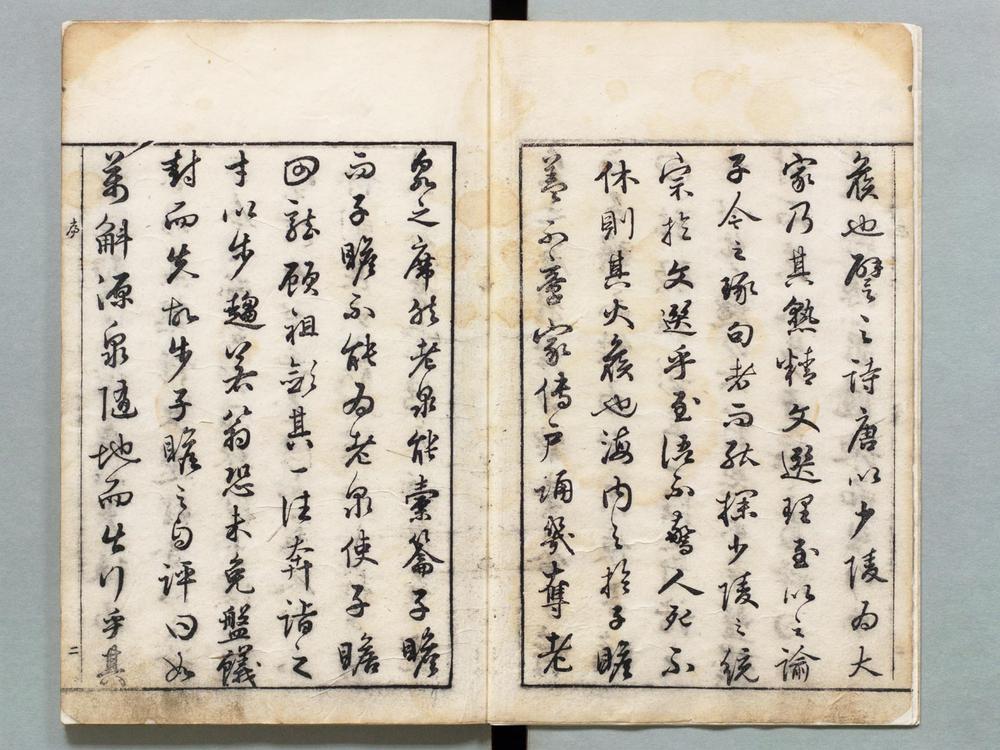 矦也譬之詩唐以少陵為大
家乃其熟精文選理至以之諭
子今之琢句者而能探少陵之統
宗於文選乎至語不驚人死不
休則其火矦也海內之於子瞻
蓋不啻家傳戶誦幾奪老
泉之席然老泉能橐籥子瞻
而子瞻不能為老泉使子瞻
回龍顧祖斂其一往奔詣之
才以步趨若翁恐未免盤蟻
封而失故步子瞻之自評曰如
萬斛源泉隨地而出行乎其
序
二